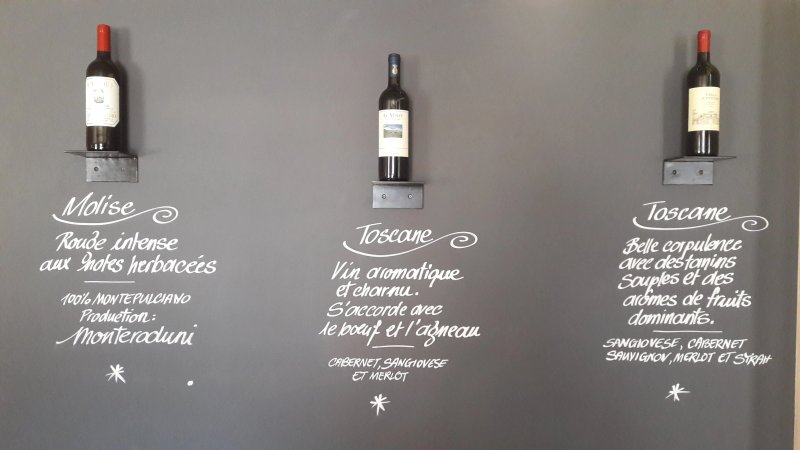 Molise
Rouge intense
aux notes herbacées
100% MONTEPULCIANO
Production:
Monteroduni
Toscane
Vin aromatique
et charnu.
S'accorde avec
le boeuf et l'agneau
CABERNET, SANGIOVESE
ET MERLOT
Toscane
Belle corpulence
avec des tamins
souples et des
arômes de fruits
dominants.
SANGIOVESE, CABERNET
SAUVIGNON, MERLOT ET SYRAH